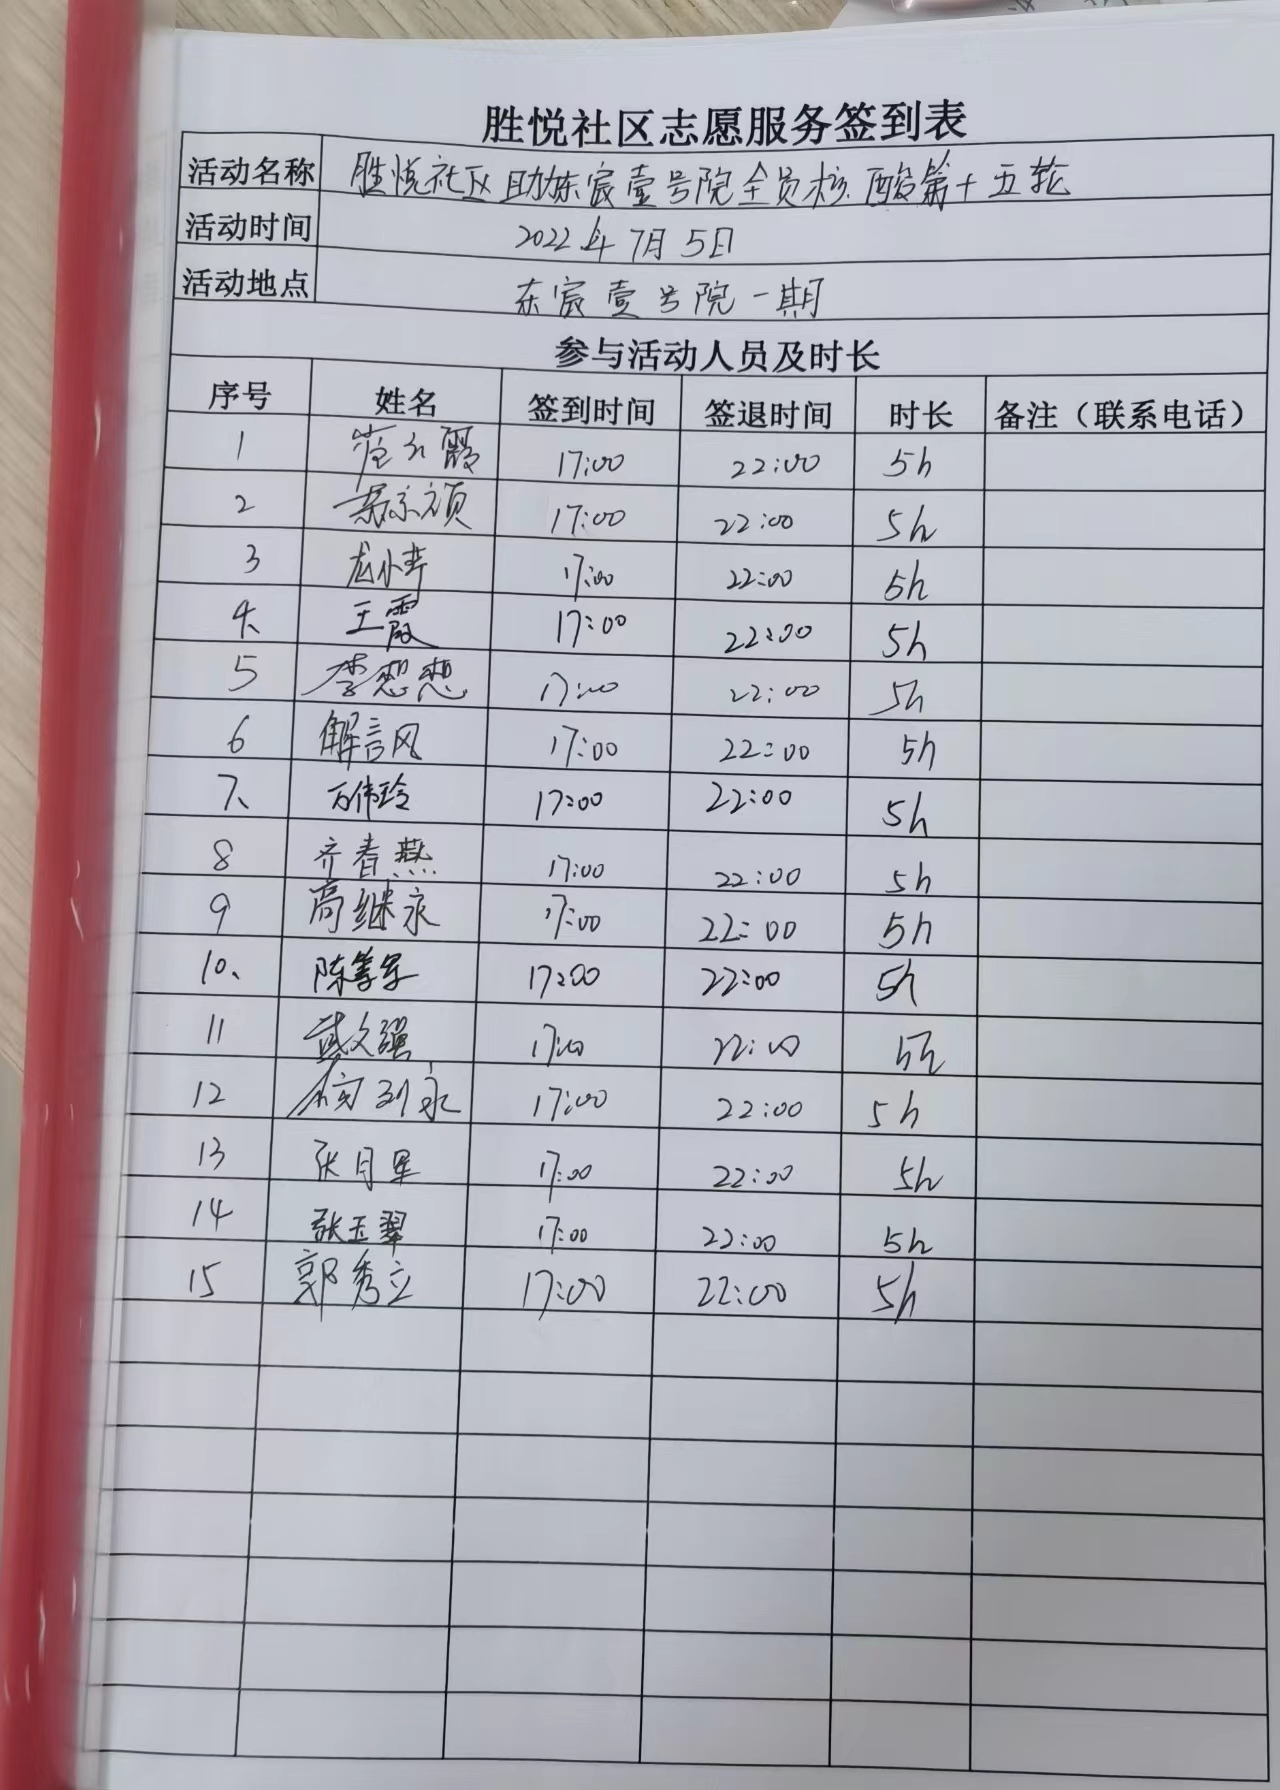 胜悦社区志愿服务签到表
活动名称 胜悦社区助东宸壹号院全员核酸第十五轮
活动时间 2022年7月5日
活动地点 东宸壹号院一期
参与活动人员及时长
序号 姓名 签到时间 签退时间 时长 备注（联系电话）
1 霞 17:00 22:00 5h
2 17:00 22:00 5h
3 龙小 17:00 22:00 5h
4、 王霞 17:00 22:00 5h
5 李想想 17:00 22:00 5h
6 解言风 17:00 22:00 5h
7、 万伟玲 17:00 22:00 5h
8 齐春燕 17:00 22:00 5h
9 高继永 17:00 22:00 5h
10、 陈 军 17:00 22:00 5h
11 文强 17:00 22:00 5h
12 永 17:00 22:00 5h
13 张月 17:00 22:00 5h
14 张玉翠 17:00 22:00 5h
15 郭秀立 17:00 22:00 5h